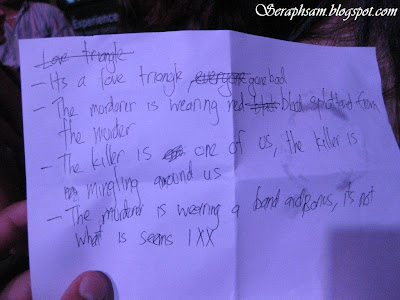 Seraphsam.blogspot.com
Experience
Love triangle
- Its a love triangle, everyone gone bad
- The murderer is wearing red blood splattered from
the murder
- The killer is one of us, the killer is
mingling around us
- The murderer is wearing a band and Bonus, it's not
what is seems 1XX